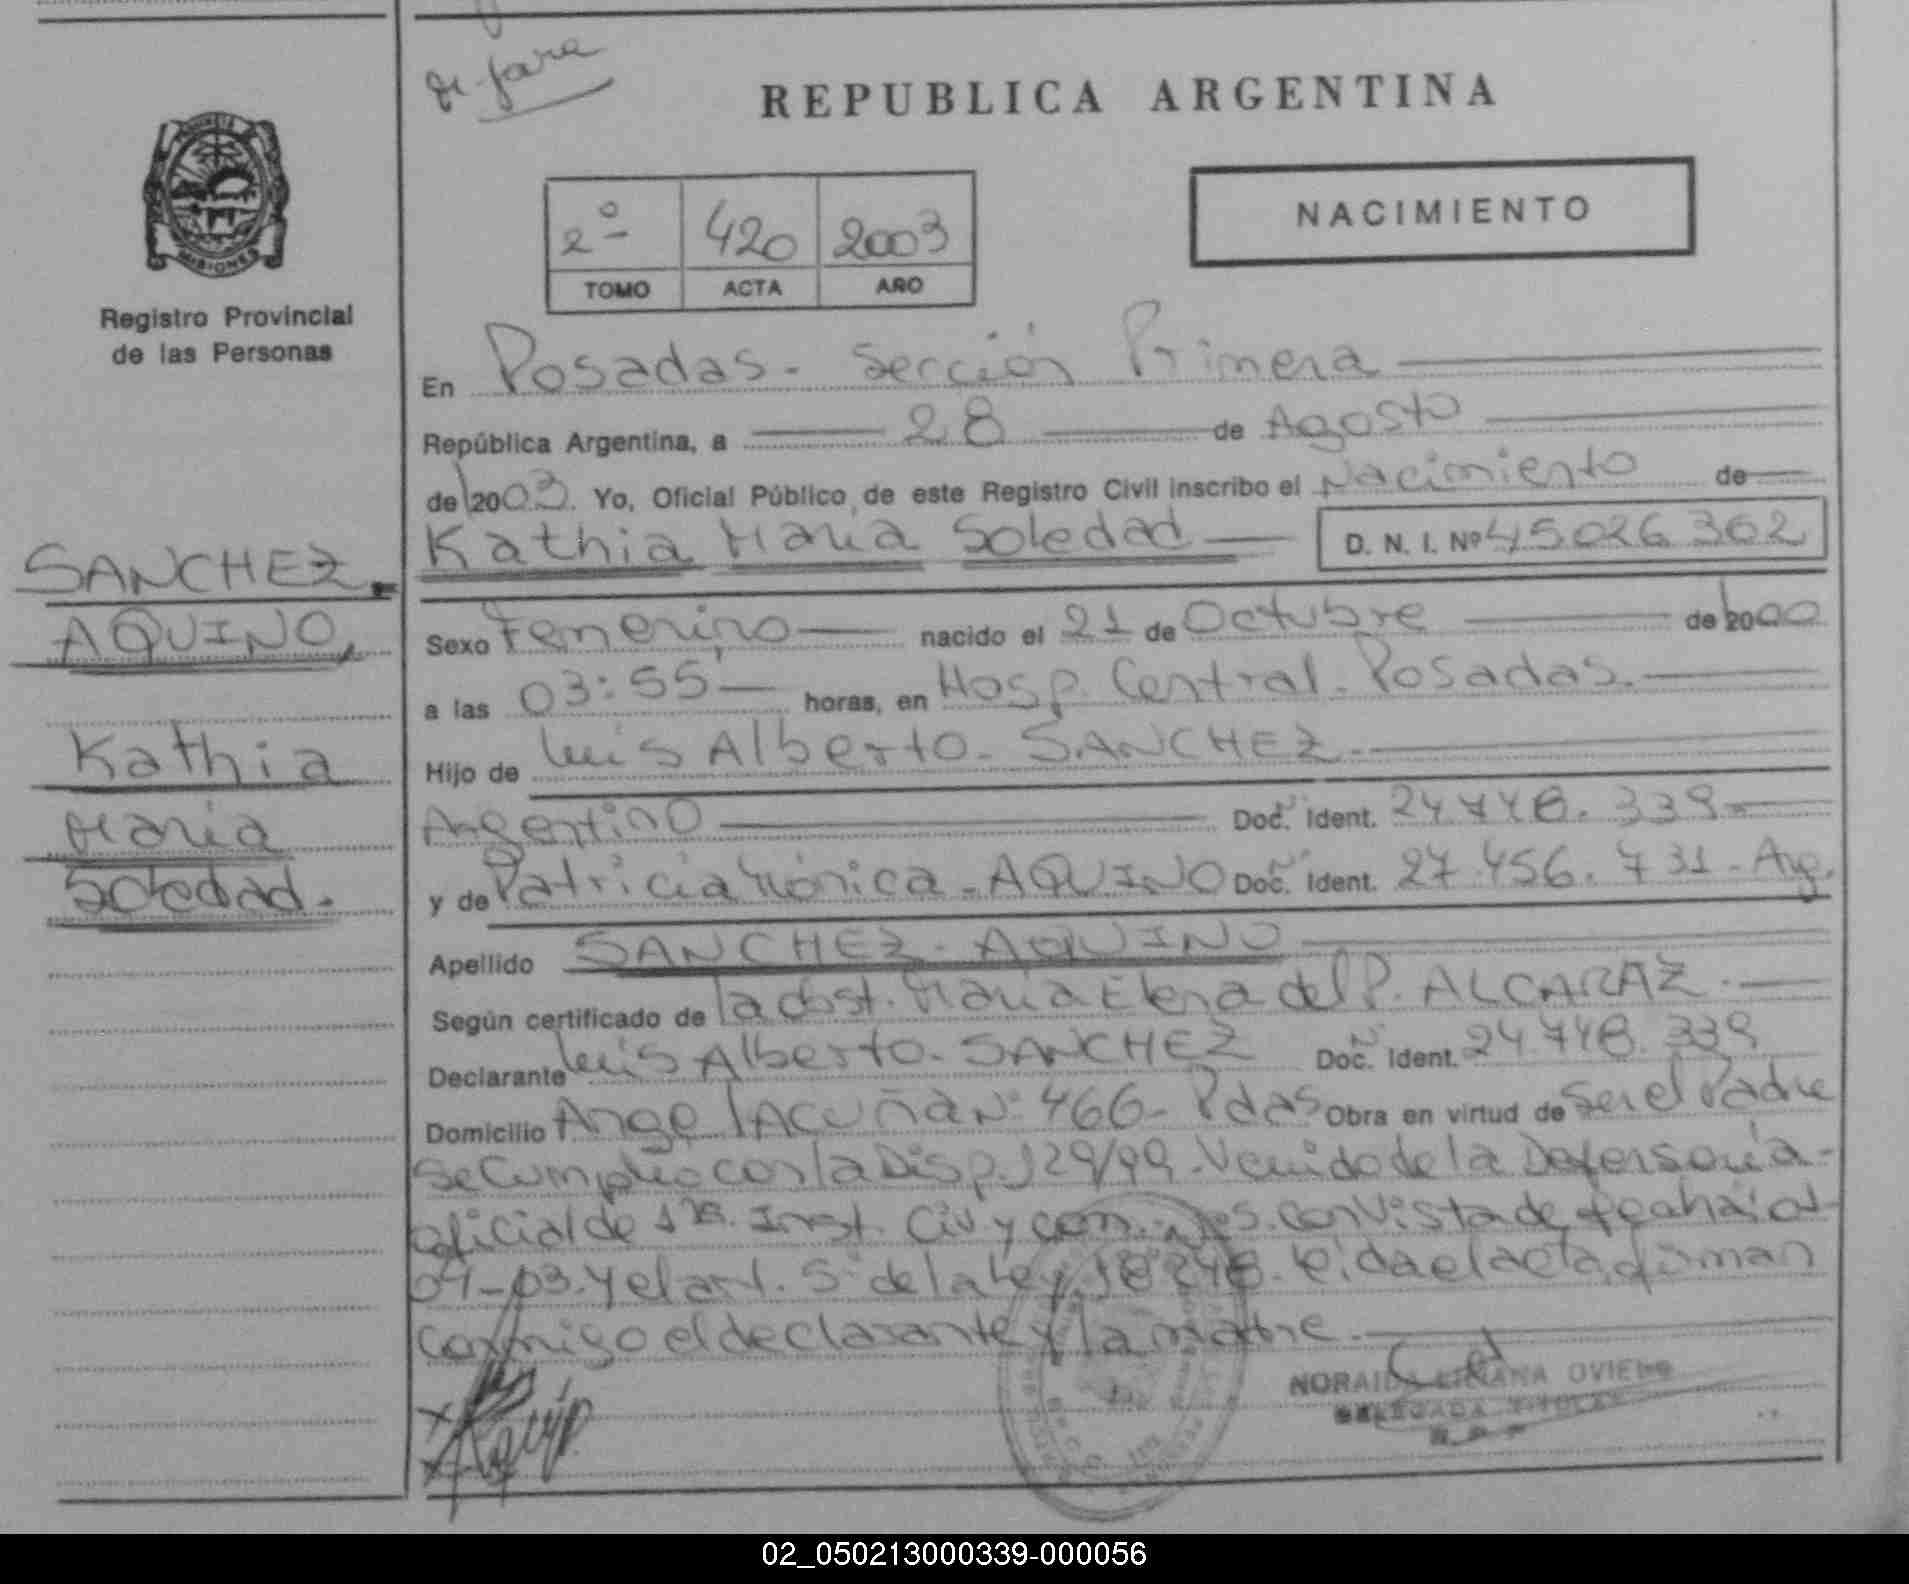 REPUBLICA ARGENTINA
PROVINCIA
MISIONES
Registro Provincial
de las Personas
2º 420 2003
TOMO ACTA AÑO
NACIMIENTO
En Posadas - Sección Primera
República Argentina, a 28 de Agosto
de 2003. Yo, Oficial Público de este Registro Civil inscribo el Nacimiento de
Kathia María Soledad D. N. I. Nº 45026 302
SANCHEZ
AQUINO,
Kathia
María
Soledad.
Sexo Femenino nacido el 21 de Octubre de 2000
a las 03:55 horas, en Hosp. Central - Posadas.
Hijo de Luis Alberto - SANCHEZ
Argentino Doc. Ident. 24.748.339
y de Patricia Mónica - AQUINO Doc. Ident. 27.456.731 - Arg.
Apellido SANCHEZ - AQUINO
Según certificado de la obst. María Elena del P. ALCARAZ.
Declarante Luis Alberto - SANCHEZ Doc. Ident. 24.748.339
Domicilio Angel Acuña Nº 466 - Pdas Obra en virtud de Ser el Padre
Se Cumplio con la Disp. 129/99. Venido de la Defensoria
oficial de 1ra. Inst. Civ y Com. con Vista de fecha
04-03. y el art. 5º de la Ley 18248. Leida el acta, firman
conmigo el declarante y la madre.
NORAIDA LILIANA OVIEDO
DELEGADA TITULAR
02_050213000339-000056